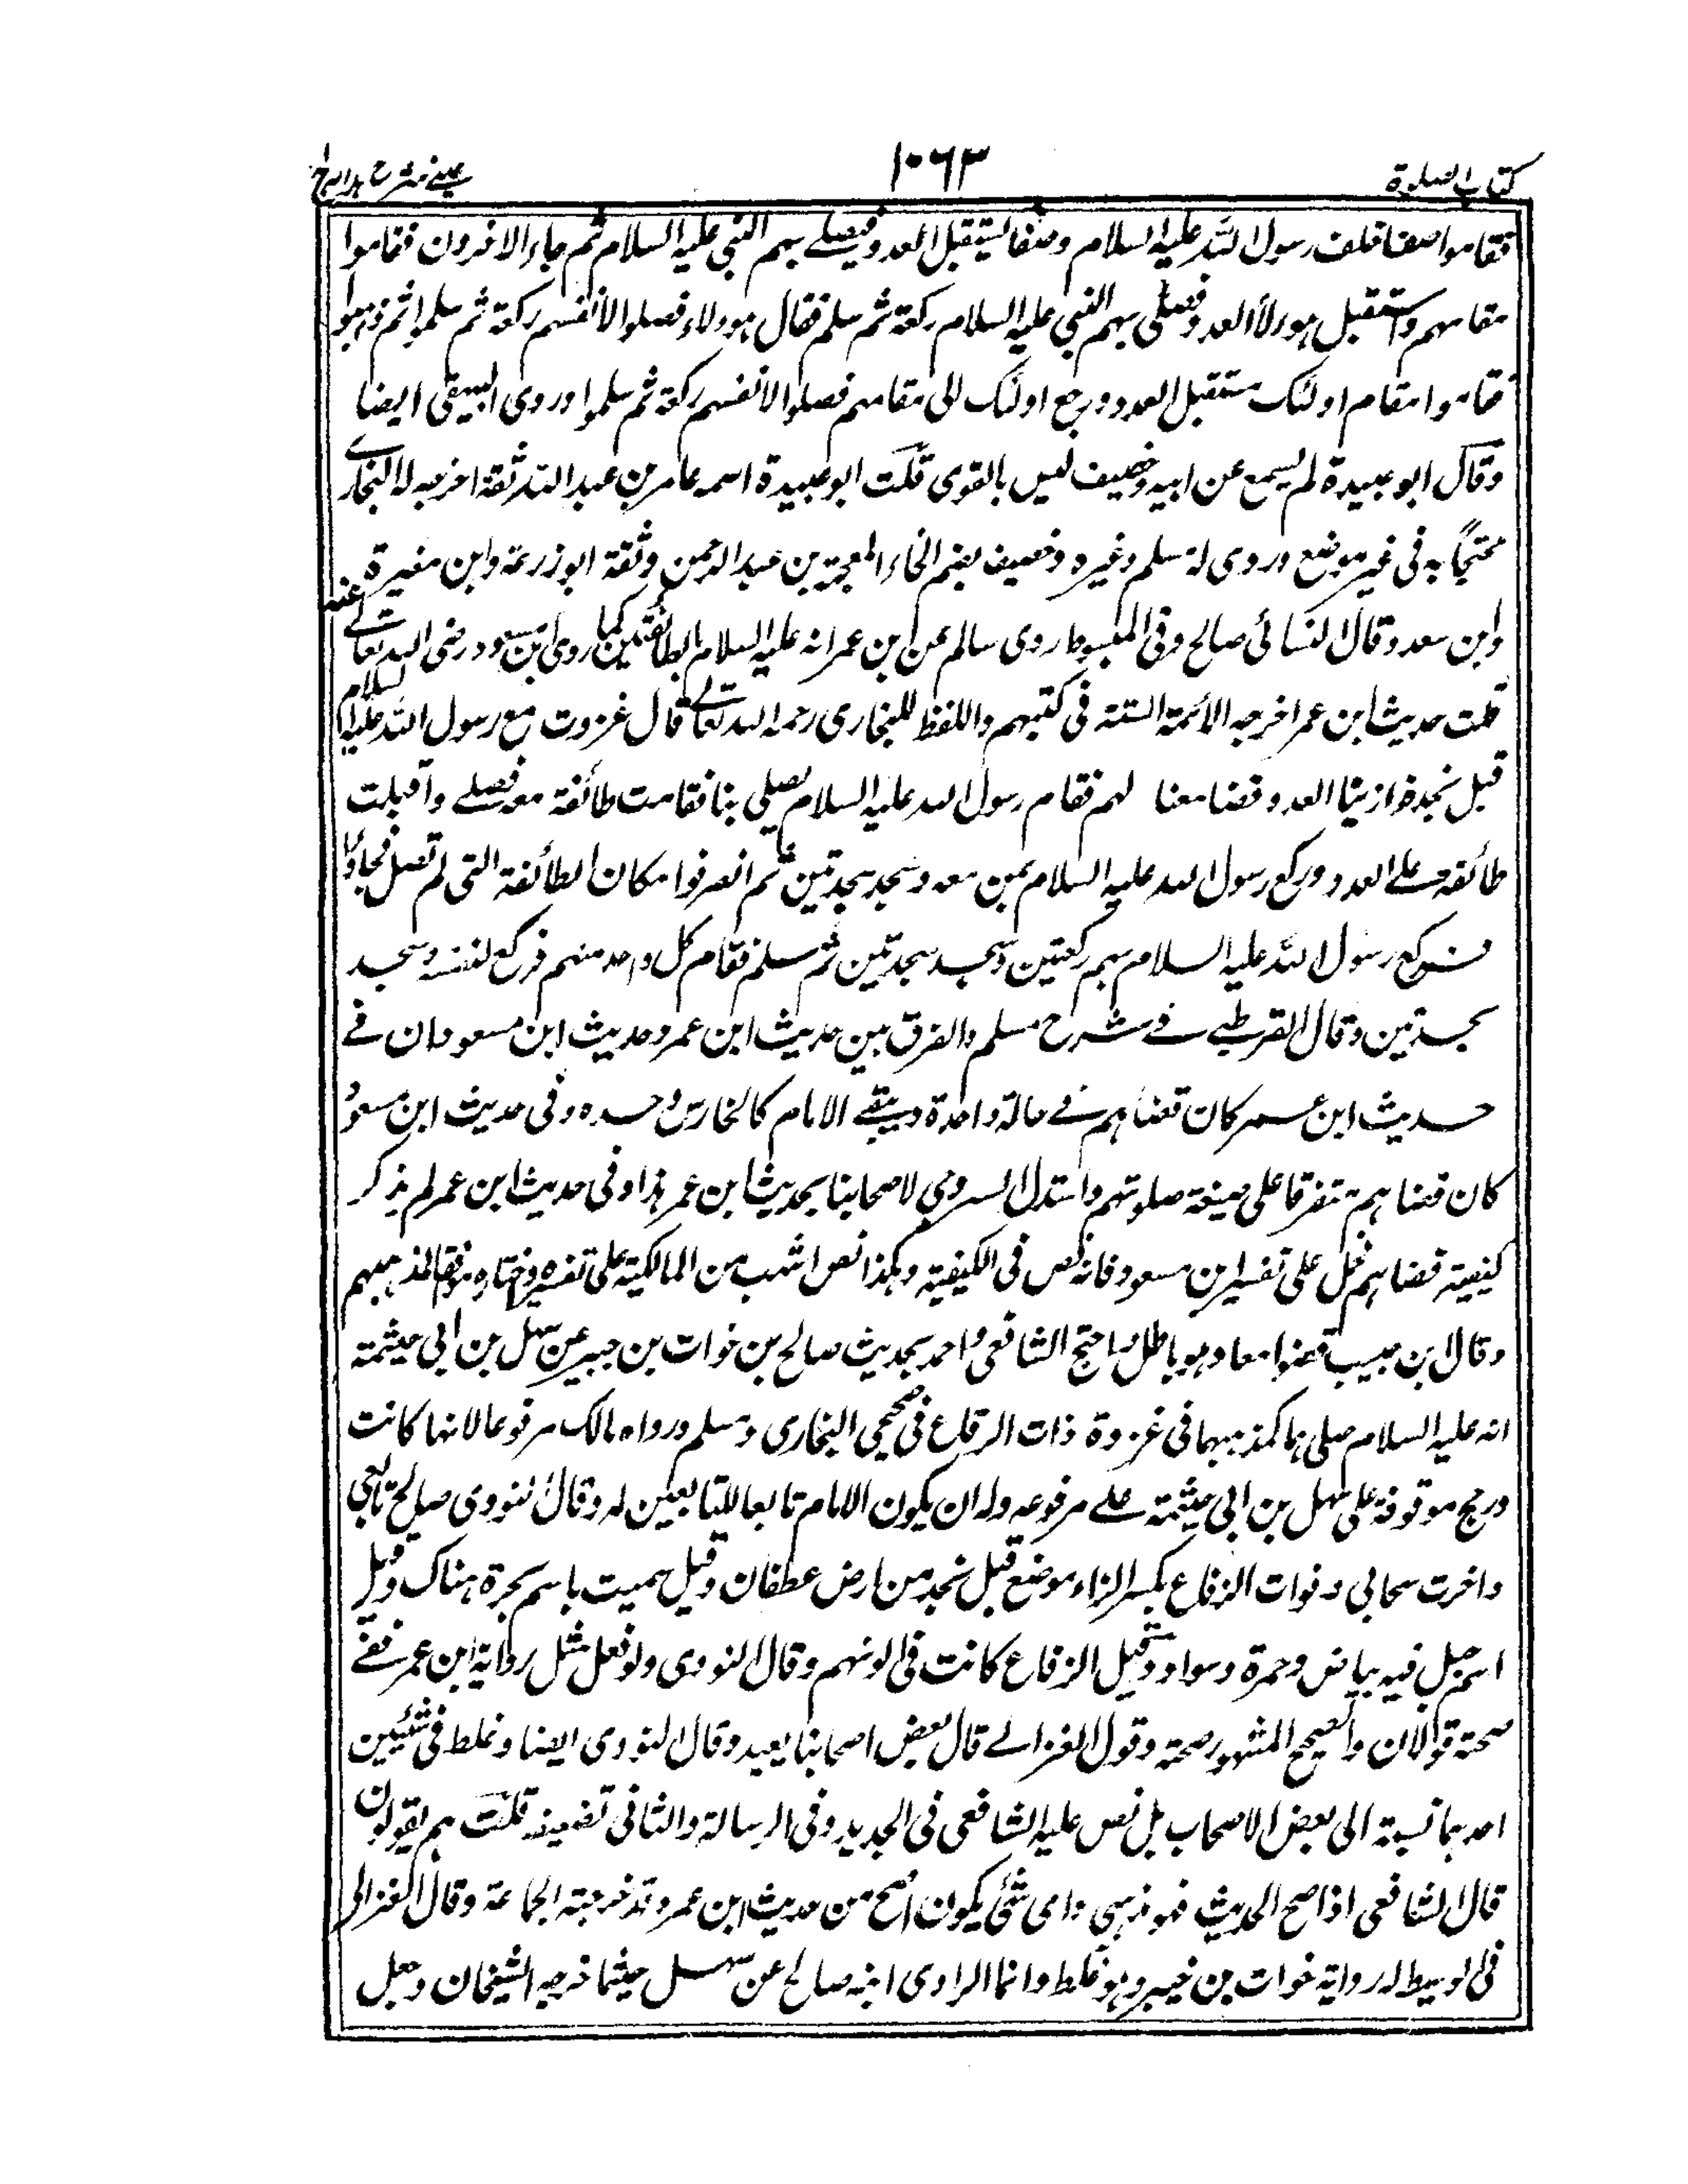 كتاب الصلوة
١٠٦٣
عيني شرح هدايه ج ١
فقاموا صفا خلف رسول الله عليه السلام وصفا يستقبل العدو فيصلے بهم النبي عليه السلام ثم جاء الاخرون فقاموا
مقامهم واستقبل هولاء العدو فصلى بهم النبي عليه السلام ركعة ثم سلم فقال هولاء فصلوا لأنفسهم ركعة ثم سلموا ثم ذهبوا
فقاموا مقام اولئك مستقبل العدو ورجع اولئك الى مقامهم فصلوا لانفسهم ركعة ثم سلموا وروى البيهقي ايضا
وقال ابو عبيدة لم يسمع عن ابيه وخصيف ليس بالقوى قلت ابو عبيدة اسمه عامر بن عبد الله ثقة اخرج له البخارے
محتجاً به فى غير موضع وروى له مسلم وغيره وخصيف بضم الخاء المعجمة بن عبد الرحمن وثقة ابو زرعة وابن مغيرة
وابن سعد وقال النسائى صالح وفى المبسوط روى سالم عن ابن عمر انه عليه السلام بالطائفتين كما روى ابن مسعود رضى الله تعالے عنه
قلت حديث ابن عمر اخرجه الأئمة الستة فى كتبهم واللفظ للبخارى رحمه الله تعالے قال غزوت مع رسول الله عليه السلام
قبل نجد فوازينا العدو فضا معنا لهم فقام رسول الله عليه السلام يصلى بنا فقامت طائفة معه فصلے واقبلت
طائفة علے العدو وركع رسول الله عليه السلام بمن معه وسجد سجدتين ثم انصرفوا مكان الطائفة التى لم تصل فجاؤا
فركع رسول الله عليه السلام بهم ركعتين وسجد سجدتين ثم سلم فقام كل واحد منهم فركع لنفسه وسجد
سجدتين وقال القرطبے فے شرح مسلم والفرق بين حديث ابن عمر وحديث ابن مسعود ان فے
حديث ابن عمر كان قضاهم فے حالة واحدة ويبقے الامام كالحارس وحده وفى حديث ابن مسعود
كان قضاهم متفرقا على صيغة صلوتهم واستدل السروجي لاصحابنا بحديث ابن عمر هذا وفى حديث ابن عمر لم يذكر
كيفية قضاهم فحمل على تفسير ابن مسعود فانه نص فى الكيفية وهكذا نص اشهب من المالكية على تفسيره واختاره موافقا لمذهبهم
وقال ابن حبيب قضوا معا وهو باطل واحتج الشافعى واحمد بحديث صالح بن خوات بن جبير عن سهل بن ابى حيثمة
انه عليه السلام صلى بها كمذهبهما فى غزوة ذات الرقاع فى صحيحى البخارى ومسلم ورواه مالك مرفوعا لانها كانت
ورجح موقوفة على سهل بن ابى حيثمة علے مرفوعه وله ان يكون الامام تابعا للتابعين له وقال النووى صالح تابعى
واخرت سحابى وخوات الرقاع بكسر الراء موضع قبل نجد من ارض عطفان وقيل سميت باسم شجرة هناك وقيل
اسم جبل فيه بياض وحمرة وسواد وقيل الرقاع كانت فى الونهم وقال النووى ولو فعل مثل رواية ابن عمر ففے
صحته قولان والصحيح المشهور صحته وقول الغزالے قال بعض اصحابنا بعيد وقال النووى ايضا وغلط فى شئيين
احدهما نسبته الى بعض الاصحاب بل نص عليه الشافعى فى الجديد وفى الرسالة والثانى تضعيفه قلت هم يقولون
قال الشافعى اذا صح الحديث فهو مذهبى واى شئى يكون اصح من حديث ابن عمر وقد خرجته الجماعة وقال الغزالى
فى الوسيط له رواية خوات بن خيبر وهو غلط وانما الراوى ابنه صالح عن سهل حيثما خرجه الشيخان وجعل